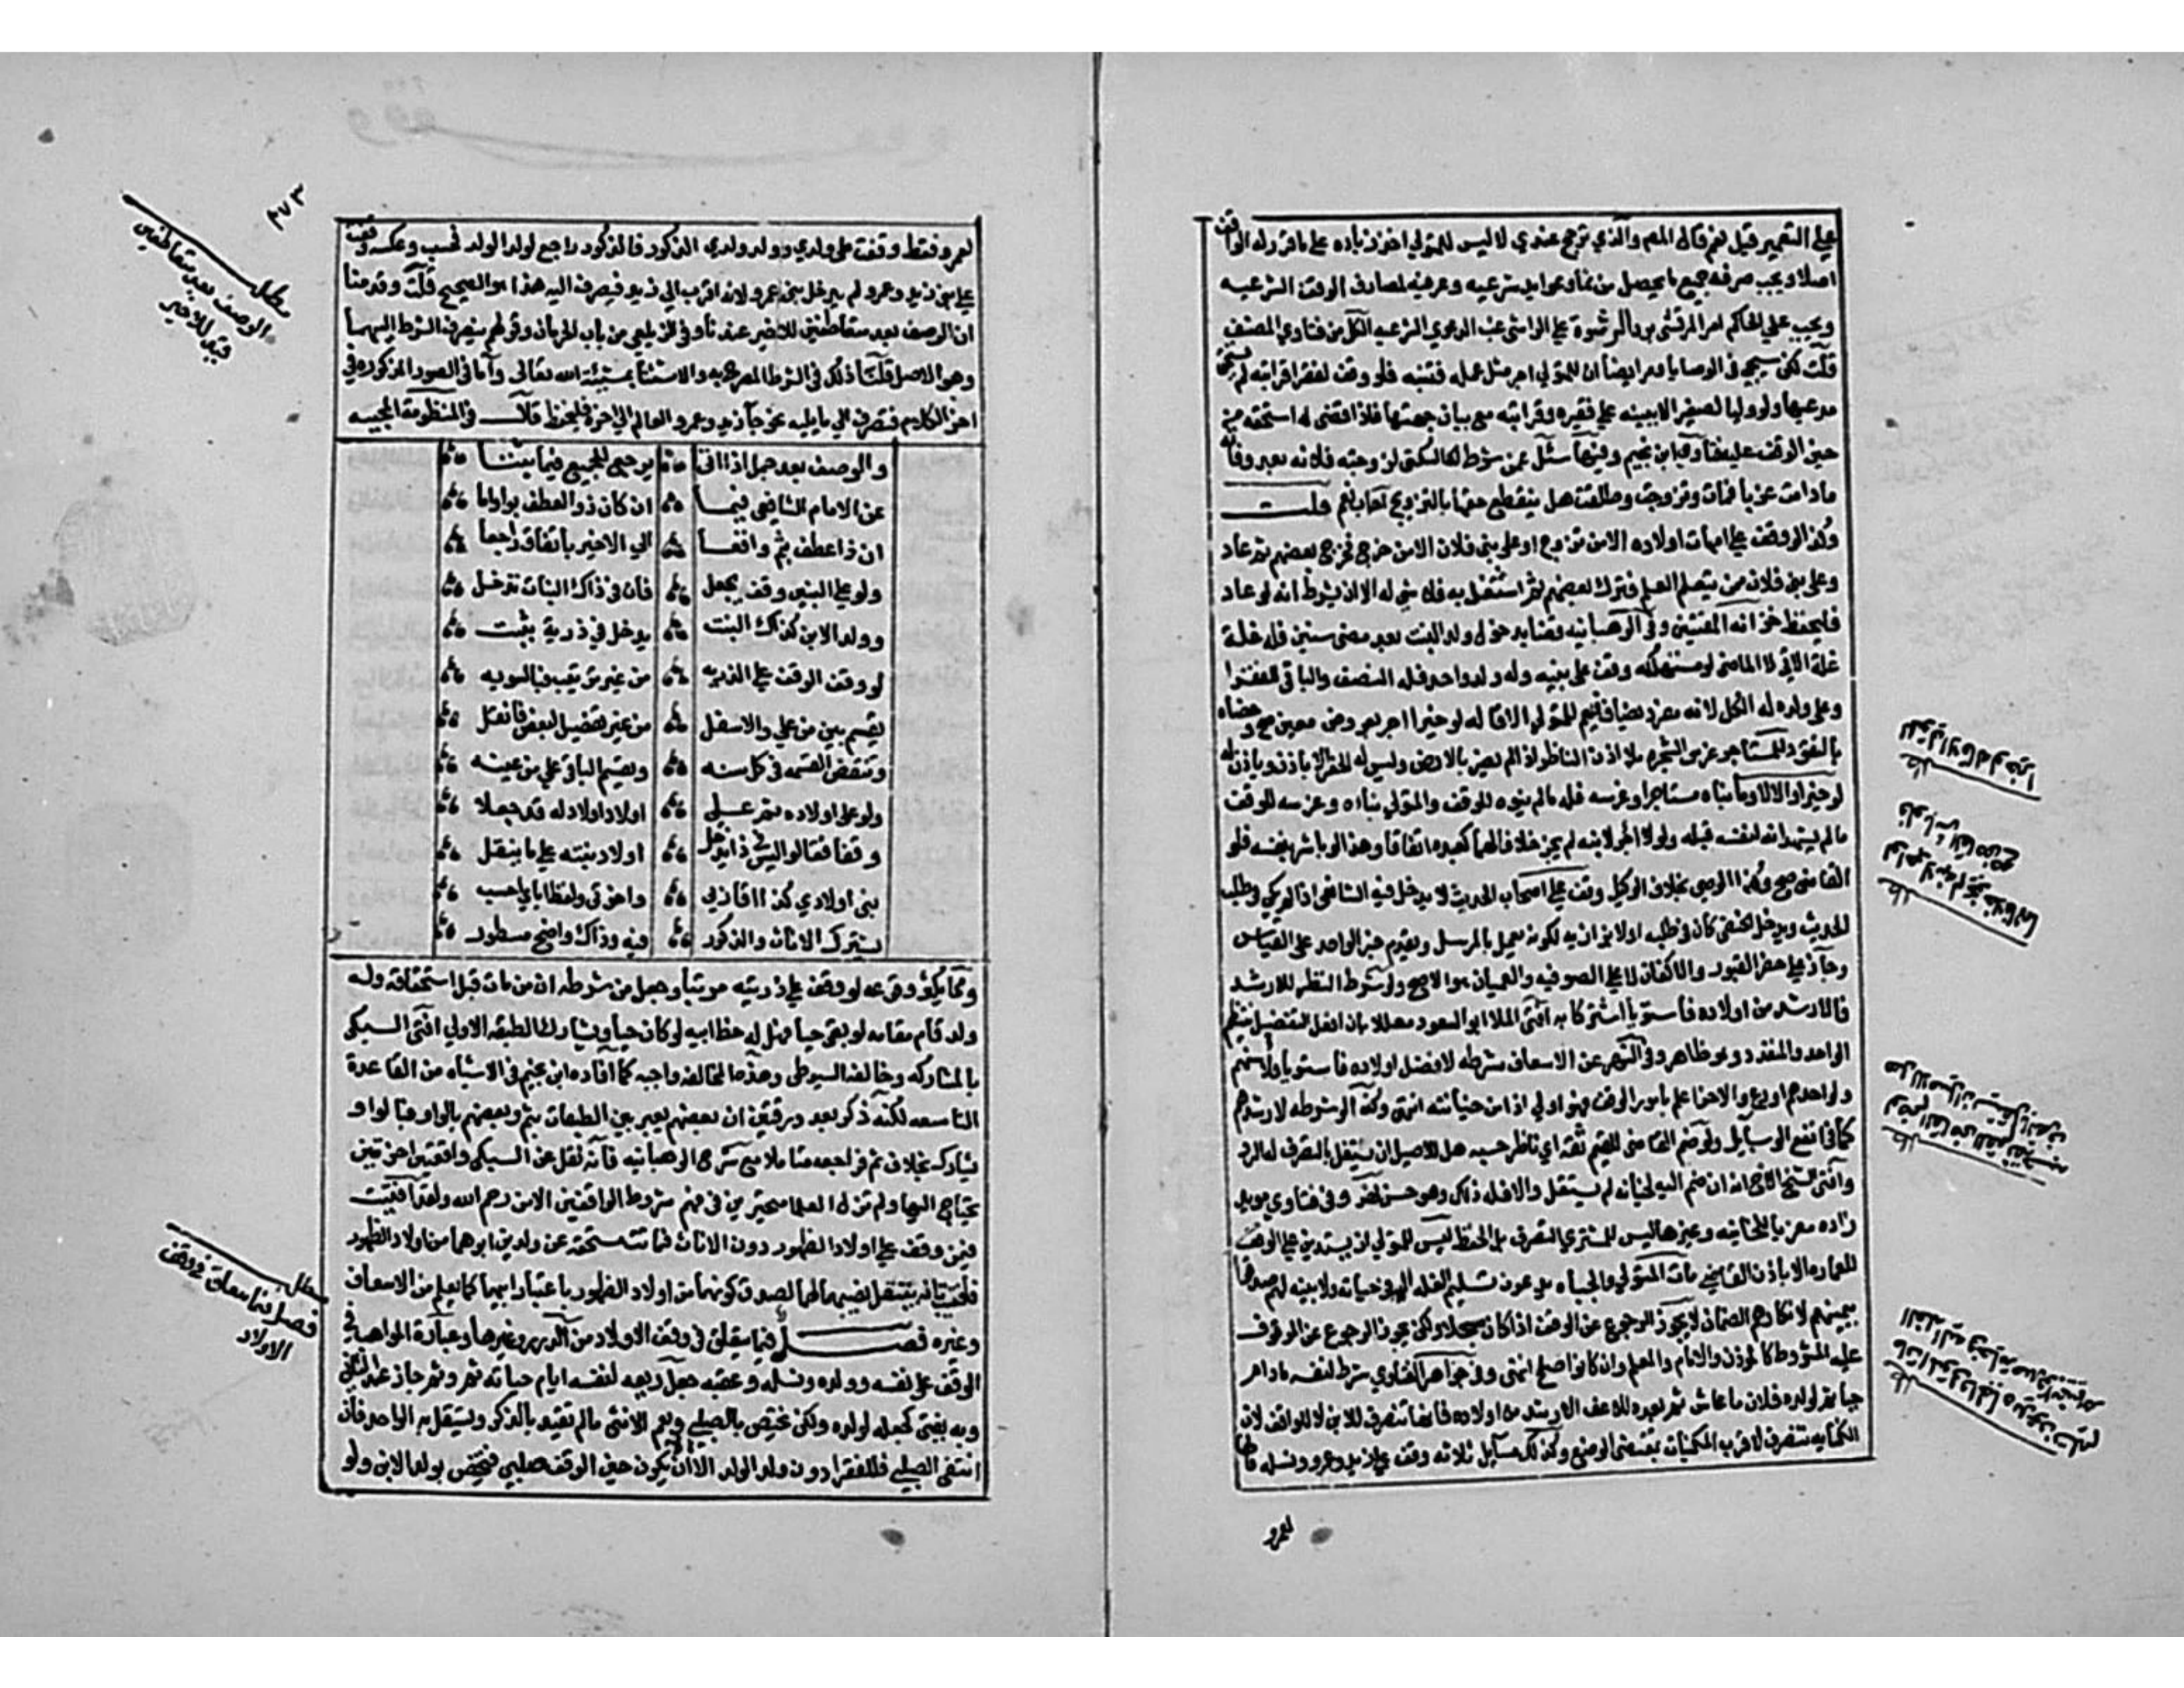 علي التعمير قيل نعم قال المص والذي ترجح عندي لا ليس للمتولي اخذ زيادة علي ما قرر له الواقف
اصلا ويجب صرفه جميع ما يحصل من نماء وعوايد شرعيه وعرفيه لمصارف الوقف الشرعيه
ويجب علي الحاكم امر المرتشي برد الرشوة علي الراشي غب الدعوي الشرعيه الكل من فتاوي المصنف
قلت لكن سيجي في الوصايا ومر ايضا ان للمتولي اجر مثل عمله فتنبه فلو وقف لفقرا قرابته لم يستحق
مدعيها ولو وليا لصغير الا ببينه علي فقره وقرابته مع بيان جهتها فاذا قضي له استحقه من
حين الوقف عليه فتاوي ابن نجيم وفيها سئل عمن شرط السكني لزوجته فلانه بعد وفاته
ما دامت عزبا فمات وتزوجت وطلقت هل ينقطع حقها بالتزويج اجاب نعم قلت
وكذا الوقف علي امهات اولاده الا من تزوج او علي بني فلان الا من خرج فخرج بعضهم ثم عاد
وعلي بني فلان ممن يتعلم العلم فترك بعضهم ثم اشتغل به فلا شي له الا ان يشرط انه لو عاد
فليحفظ خزانه المفتيين وفي الوهبانيه قضا بدخول ولد البنت بعد مضي سنين فله غلة
غلة الاتي لا الماضي لو مستهلكه وقف علي بنيه وله ولد واحد فله النصف والباقي للفقرا
وعلي ولده له الكل لانه مفرد مضاف فيعم للمتولي الاقاله لو خيرا اجر بعرض معين صح وخصاه
بالنقود للمستاجر غرس الشجر بلا اذن الناظر اذا لم يضر بالارض وليس له الحفر الا باذن وياذن له
لو خيرا والا لا وما بناه مستاجر او غرسه فله ما لم ينوه للوقف والمتولي بناءه وغرسه للوقف
ما لم يشهد انه لنفسه قبله ولو آجر لابنه لم يجز خلافا لهما كعبده اتفاقا وهذا لو باشر بنفسه فلو
القاضي صح وكذا الوصي بخلاف الوكيل وقف علي اصحاب الحديث لا يدخل فيه الشافعي اذا لم يكن في طلب
الحديث ويدخل الحنفي كان في طلبه اولا بزازيه لكونه يعمل بالمرسل ويقدم خبر الواحد علي القياس
وجاز علي حفر القبور والاكفان لا علي الصوفيه والعميان هو الاصح ولو شرط النظر للارشد
فالارشد من اولاده فاستويا اشتركا به افتي الملا ابو السعود معللا بان افعل التفضيل ينتظم
الواحد والمتعدد وهو ظاهر وفي النهر عن الاسعاف شرطه لافضل اولاده فاستويا فلاسنهم
ولو احدهم اورع والاخر اعلم بامور الوقف فهو اولي اذا امن خيانته انتهي وكذا لو شرطه لارشدهم
كما في انفع الوسايل ولو ضم القاضي للقيم ثقة اي ناظر حسبه هل للاصيل ان يستقل بالتصرف لم اره
وافتي الشيخ الاخ انه ان ضم اليه لخيانه لم يستقل والا فله ذلك وهو حسن نهر وفي فتاوي مويد
زاده معزيا للخانيه وغيرها ليس للمشرف التصرف بل الحفظ ليس للمتولي ان يستدين علي الوقف
للعماره الا باذن القاضي مات المتولي والجباه يدعون تسليم الغله اليه في حياته ولا بينه لهم صدقوا
بيمينهم لانكارهم الضمان لا يجوز الرجوع عن الوقف اذا كان مسجلا ولكن يجوز الرجوع عن الموقوف
عليه المشروط كالموذن والامام والمعلم وان كانوا اصلح انتهي وفي جواهر الفتاوي شرط لنفسه ما دام
حيا ثم لولده فلان ما عاش ثم بعده للاعف الارشد من اولاده فالها تنصرف للابن لا للواقف لان
الكنايه تنصرف لاقرب المكنيات بمقتضي الوضع وكذلك مسايل ثلاثه وقف علي زيد وعمرو ونسله فالها
لعمرو
لعمرو فقط وقفت علي ولدي وولد ولدي الذكور فالذكور راجع لولد الولد فحسب وعكسه وقفت
علي بني زيد وعمرو لم يدخل بني عمرو لانه اقرب الي زيد فيصرف اليه هذا هو الصحيح قلت وقدمنا
ان الوصف بعد متعاطفين للاخير عندنا وفي الزيلعي من باب المحرمات وقولهم ينصرف الشرط اليهما
وهو الاصل قلنا ذلك في الشرط المصرح به والاستثنا بمشيئة الله تعالي واما في الصور المذكوره في
اخر الكلام فتصرف الي ما يليه نحو جا زيد وعمرو العالم الي اخره فليحفظ قلت وفي المنظومة المحبيه
والوصف بعد جمل اذا اتي يرجع للجميع فيما ثبتا
عن الامام الشافعي فيما ان كان ذو العطف بواو اما
ان ذا عطف بثم واقعا الي الاخير باتفاق راجعا
ولو علي البنين وقف يجعل فان في ذاك البنات تدخل
وولد الابن كذاك البنت يدخل في ذرية بثبت
لو وقف الوقف علي الذريه من غير ترتيب فبالسويه
يقسم بين من علي والاسفل من غير تفضيل لبعض فانقل
وتنقض القسمه في كل سنه ويقسم الباقي علي من عينه
ولو علي اولاده ثم علي اولاد اولاد له قد جعلا
وقفا فقالوا ليس في ذا يدخل اولاد بنته علي ما ينقل
بني اولادي كذا اقاربي واخوتي ولفظ ابائي احسب
يشترك الاناث والذكور فيه وذاك واضح مسطور
ومما يكثر وقوعه لو وقف علي ذريته مرتبا وجعل من شرطه ان من مات قبل استحقاقه وله
ولد قام مقامه لو بقي حيا فهل له حظ ابيه لو كان حيا ويشارك الطبقه الاولي افتي السبكي
بالمشاركه وخالفه السيوطي وهذه المخالفه واجبه كما افاده ابن نجيم في الاشباه من القاعدة
التاسعه لكنه ذكر بعد ورقتين ان بعضهم يعبر بين الطبقات بثم وبعضهم بالواو فبالواو
يشارك بخلاف ثم فراجعه متاملا مع شرح الوهبانيه فانه نقل عن السبكي واقعتين اخرتين
يحتاج اليها ولم تزل العلما متحيرين في فهم شروط الواقفين الا من رحم الله ولقد افتيت
فيمن وقف علي اولاد الظهور دون الاناث فماتت مستحقة عن ولدين ابوهما من اولاد الظهور
فاجبت بانه ينتقل نصيبها لهما لصدق كونهما من اولاد الظهور باعتبار ابيهما كما يعلم من الاسعاف
وغيره فصل فيما يتعلق في وقف الاولاد من الدرر وغيرها وعبارة المواهب في
الوقف علي نفسه وولده ونسله وعقبه جعل ريعه لنفسه ايام حياته ثم وثم جاز عند الثاني
وبه يفتي كجعله لولده ولكن يختص بالصلبي ويعم الانثي ما لم تقيد بالذكر ويستقل به الواحد فان
انتفي الصلبي فللفقرا دون ولد الولد الا ان يكون حين الوقف صلبي فيختص بولد الابن ولو
٢٧٣
مطلب
الوصف بعد متعاطفين
قيد للاخير
مطلب
فصل فيما يتعلق في وقف
الاولاد